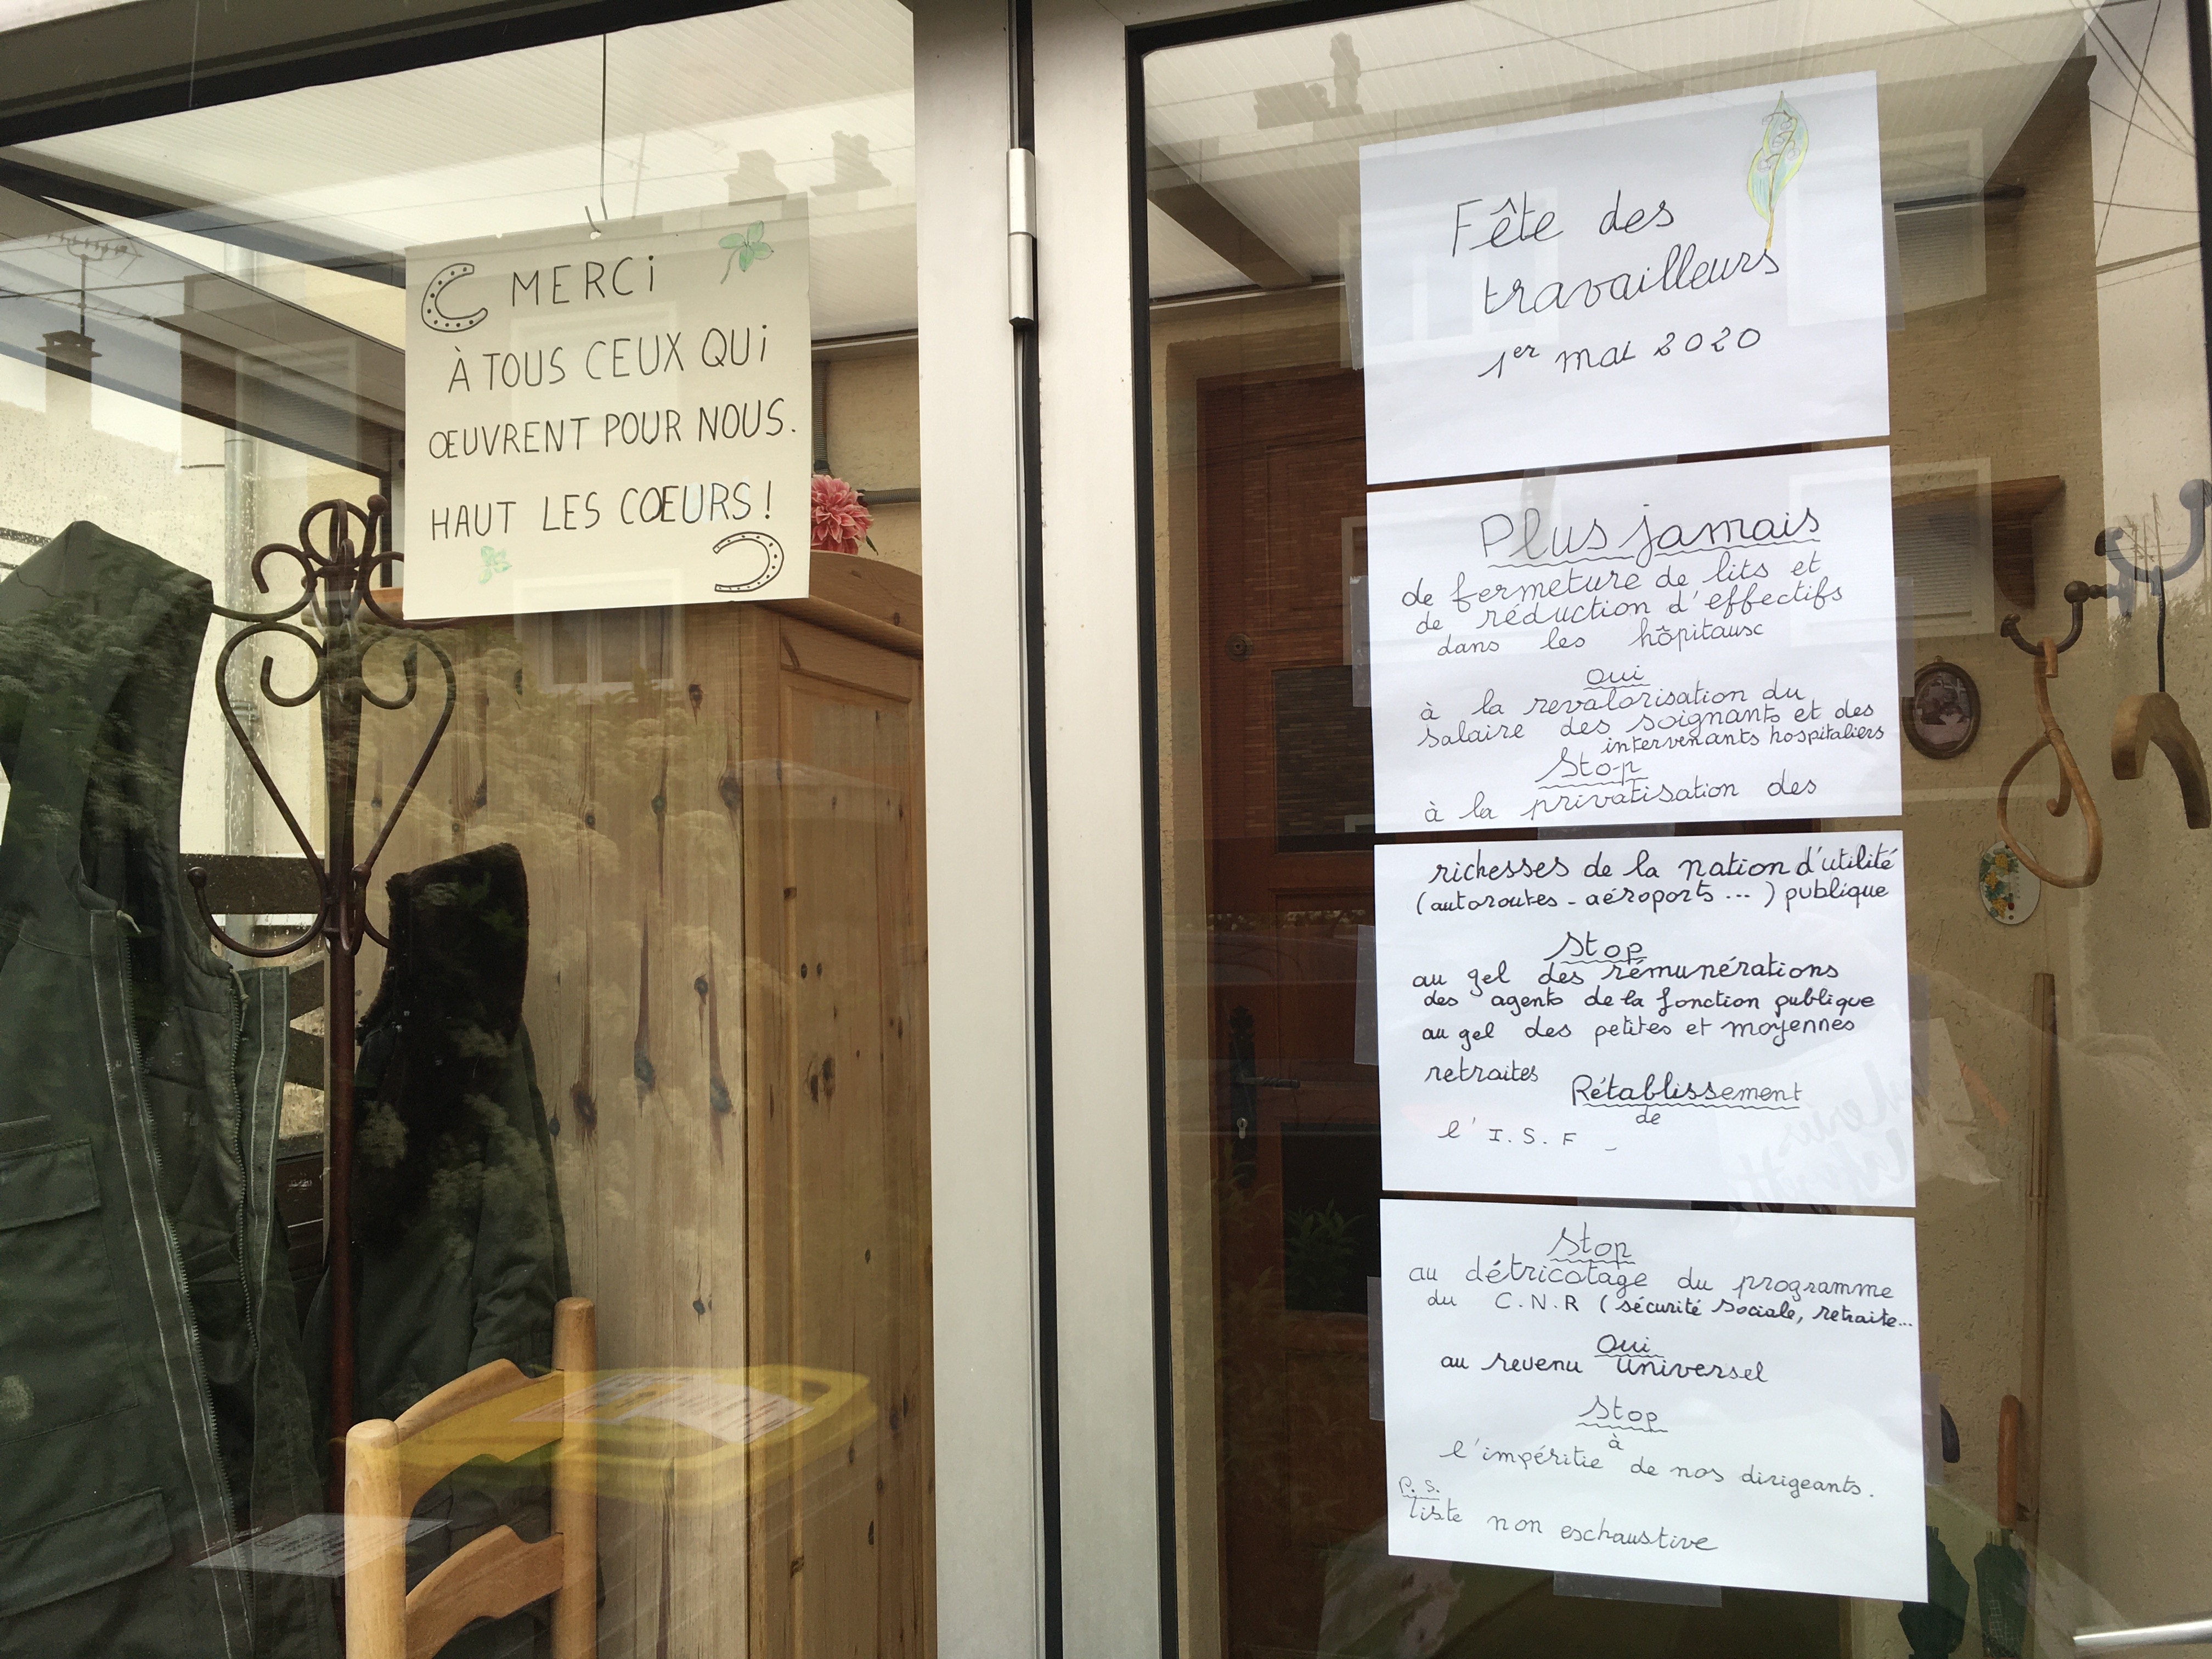 MERCi
À TOUS CEUX QUi
ŒUVRENT POUR NOUS.
HAUT LES COEURS !
Fête des
travailleurs
1er mai 2020
Plus jamais
de fermeture de lits et
de réduction d'effectifs
dans les hôpitaux
Oui
à la revalorisation du
salaire des soignants et des
intervenants hospitaliers
Stop
à la privatisation des
richesses de la nation d'utilité
(autoroutes - aéroports ... ) publique
Stop
au gel des rémunérations
des agents de la fonction publique
au gel des petites et moyennes
retraites
Rétablissement
de
l' I. S. F -
Stop
au détricotage du programme
du C.N.R ( sécurité sociale, retraite...
Oui
au revenu universel
Stop
à
l'impéritie de nos dirigeants.
P. S.
liste non exhaustive